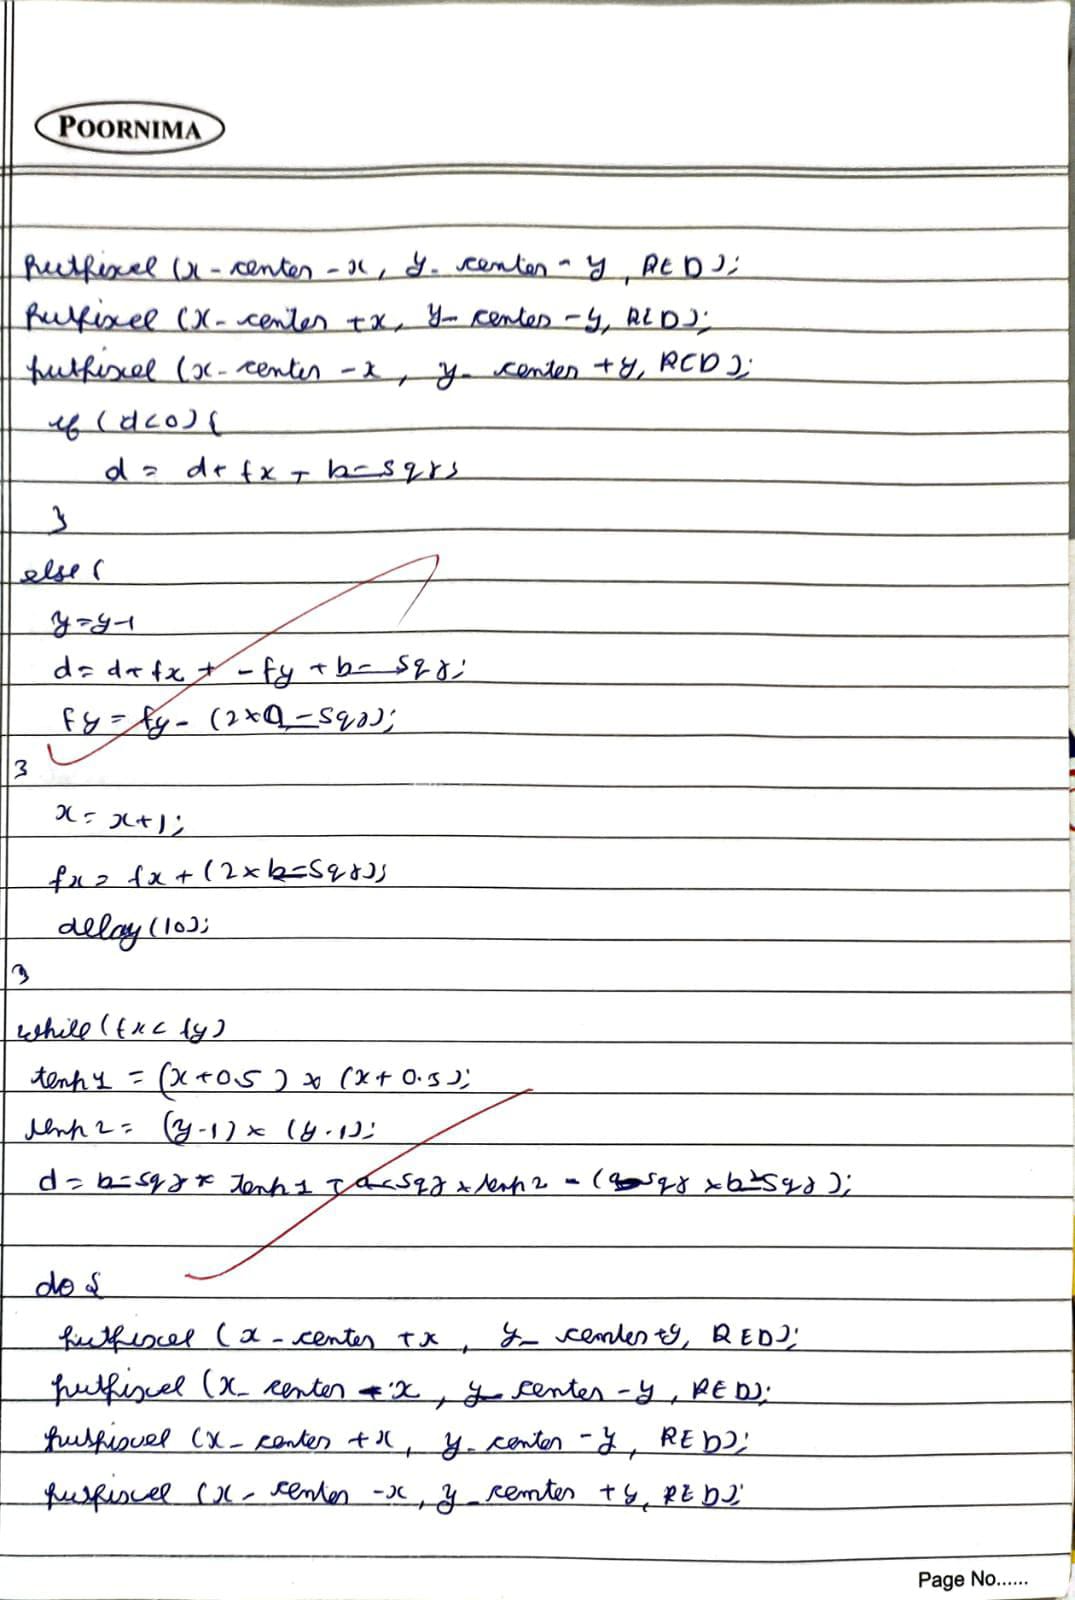 POORNIMA
putpixel (x-center-x, y-center-y, RED);
putpixel (x-center+x, y-center-y, RED);
putpixel (x-center-x, y-center+y, RED);
if (d<0){
d = d+fx+b-sqr;
}
else{
y=y-1
d=d+fx+-fy+b-sqr;
fy=fy-(2*a-sqr);
}
x=x+1;
fx=fx+(2*b-sqr);
delay(10);
}
while(fx<fy)
temp1=(x+0.5)*(x+0.5);
temp2=(y-1)*(y-1);
d=b-sqr*temp1+a-sqr*temp2-(a-sqr*b-sqr);
do{
putpixel (x-center+x, y-center+y, RED);
putpixel (x-center-x, y-center-y, RED);
putpixel (x-center+x, y-center-y, RED);
putpixel (x-center-x, y-center+y, RED);
Page No......